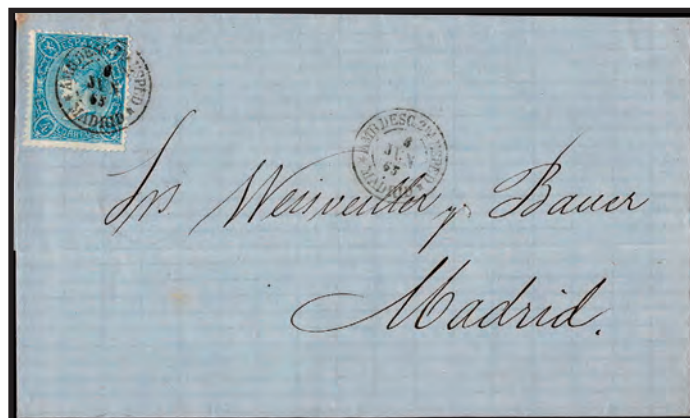 ESPAÑA
6
JUN
65
* MADRID *
AMB.DESC.
6
JUN
65
* MADRID *
Srs Weisweiller y Bauer
Madrid.